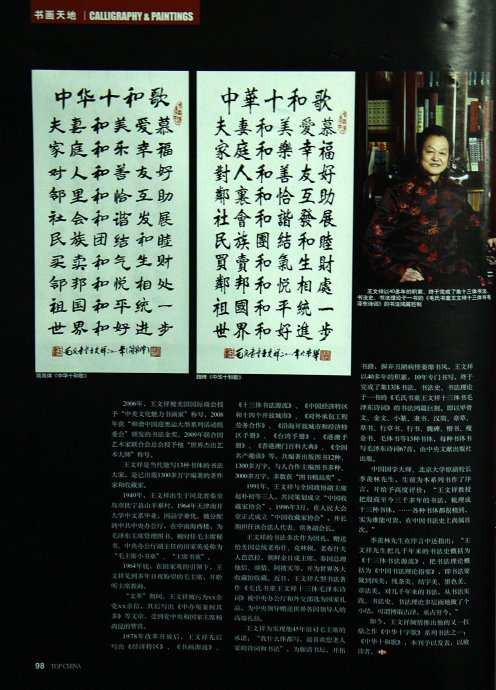 书画天地 | CALLIGRAPHY & PAINTINGS
中华十和歌
夫妻和美爱慕
家庭和乐幸福
对人和善友好
邻里和恰互助
社会和谐发展
民族团结和睦
买卖和气生财
邻邦和悦相处
祖国和平统一
世界和好进步
中華十和歌
夫妻和美愛慕
家庭和樂幸福
對人和善友好
鄰裏和恰互助
社會和諧發展
民族團結和睦
買賣和氣生財
鄰邦和悅相處
祖國和平統一
世界和好進步
王文祥以40多年的积累，终于完成了集十三体书法、
书法史、书法理论于一书的《毛氏书童王文祥十三体书毛
泽东诗词》的书法鸿篇巨制
《中华十和歌》
魏碑《中华十和歌》
2006年，王文祥被美国国际商会授
予“中美文化魅力书画家”称号。2008
年获“和谐中国迎奥运大型系列活动组
委会”颁发的书法金奖。2009年联合国
艺术家联合会总会授予他“世界杰出艺
术大师”称号。
王文祥是当代能写13种书体的书法
大家，是已出版1300多万字编著的著作
家和收藏家。
1940年，王文祥出生于河北省秦皇
岛市抚宁县由平寨村。1964年天津南开
大学中文系毕业，因品学兼优，被分配
到中共中央办公厅，在中南海西楼，为
毛泽东主席管理图书，被时任毛主席秘
书、中央办公厅副主任的田家英爱称为
“毛主席小书童”、“王郎书童”。
1964年底，在田家英的引领下，王
文祥见到多年日夜盼望的毛主席，并聆
听主席教诲。
“文革”期间，王文祥被污为××余
党××亲信，其后写出《中办冤案何其
多》等文章，受到党中央和国家主席杨
尚昆的赞赏。
1978年改革开放后，王文祥先后
写出《经济特区》、《书画源流》、
《十三体书法源流》、《中国经济特区
和十四个开放城市》、《对外承包工程
劳务合作》、《沿海开放城市和经济特
区手册》、《台湾手册》、《港澳手
册》、《香港澳门百科大典》、《全国
名产趣谈》等，共编著出版图书12种，
1300多万字，与人合作主编图书多种，
3000多万字，多数获“图书精品奖”。
1991年，王文祥与全国政协副主席
赵朴初等三人，共同筹划成立“中国收
藏家协会”，1996年3月，在人民大会
堂正式成立“中国收藏家协会”，并长
期担任该会法人代表、常务副会长。
王文祥的书法多次作为国礼，赠送
给美国总统老布什、克林顿、老布什夫
人芭芭拉、朝鲜金日成主席、泰国总理
他信、诃猜、阿披实等，并为世界各大
收藏馆收藏。近日，王文祥大型书法著
作《毛氏书童王文祥十三体毛泽东诗
词》被中央办公厅和外交部选为国家礼
品，为中央领导赠送世界各国领导人的
高端礼品。
王文祥为实现他45年前对毛主席的
承诺：“我什么体都写，最喜欢您老人
家的诗词和书法”，为廓清书坛、开拓
书路，摒弃丑陋病怪萎靡书风。王文祥
以40多年的积累、10年专门书写，终于
完成了集13体书法、书法史、书法理论
于一书的《毛氏书童王文祥十三体书毛
泽东诗词》的书法鸿篇巨制。即以甲骨
文、金文、小篆、隶书、汉简、章草、
草书、行草书、行书、魏碑、楷书、瘦
金书、毛体书等13种书体，每种书体书
写毛泽东诗词67首，由中央文献出版社
出版。
中国国学大师、北京大学原副校长
季羡林先生，生前为本系列书作了序
言，并给予高度评价：“王文祥教授
把股商至今三千多年的书法，梳理成
十三种书体，……各种书体都极精到，
实为难能可贵，在中国书法史上尚属首
次。”
季羡林先生在序言中还指出：“王
文祥先生把几千年来的书法史概括为
《十三体书法源流》，把书法理论概
括为《中国书法理论指要》，即书法要
做到四美：线条美、结字美、墨色美、
章法美。对几千年来的书法，从书法实
践、书法史、书法理论多层面地做了个
小结，可谓博取古泽，承古开今。”
如今，王文祥倾情推出他的又一扛
鼎之作《中华十字歌》系列书法之一：
《中华十和歌》，本刊予以发表，以飨
读者。
98 TOP CHINA